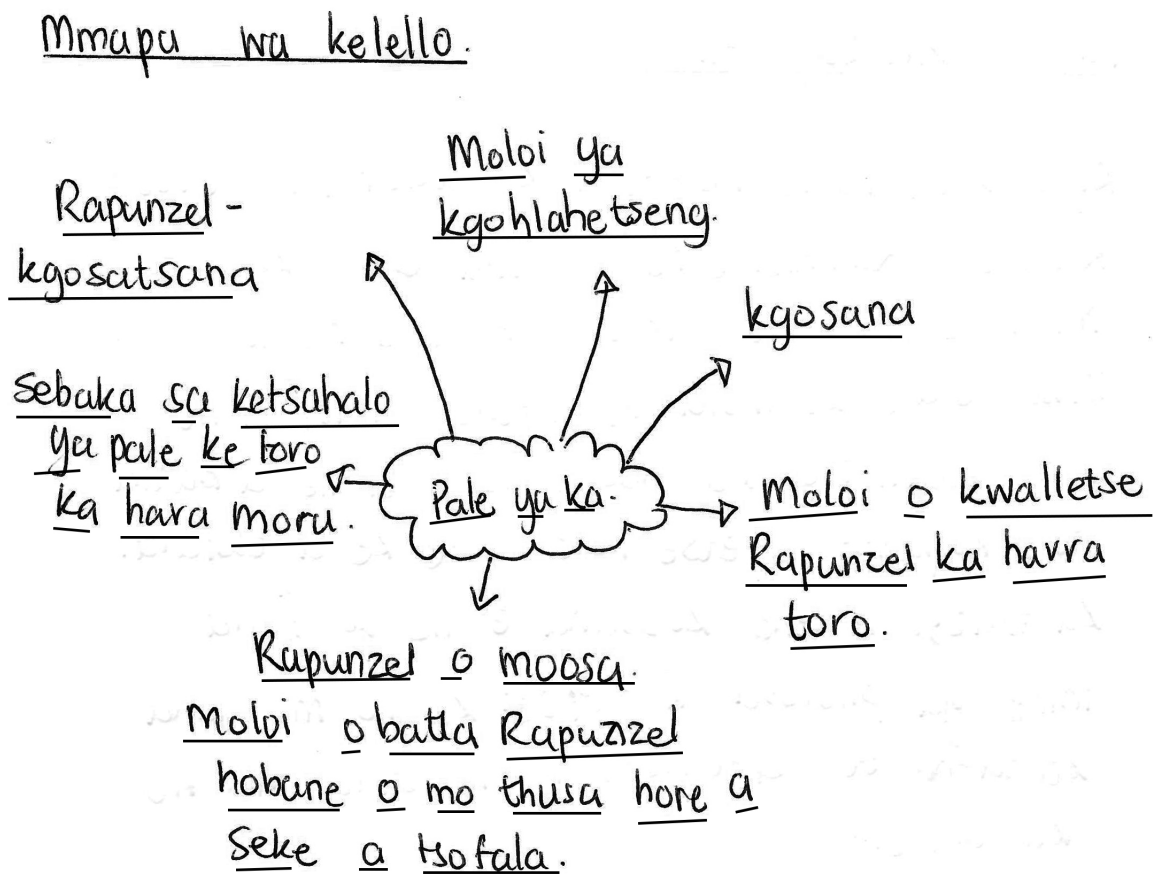 Mmapa wa kelello.
Moloi ya
kgohlahetseng.
Rapunzel -
kgosatsana
kgosana
Sebaka sa ketsahalo
ya pale ke toro
ka hara moru.
Pale ya ka.
Moloi o kwalletse
Rapunzel ka havra
toro.
Rapunzel o moosa.
Moloi o batla Rapunzel
hobane o mo thusa hore a
seke a tsofala.